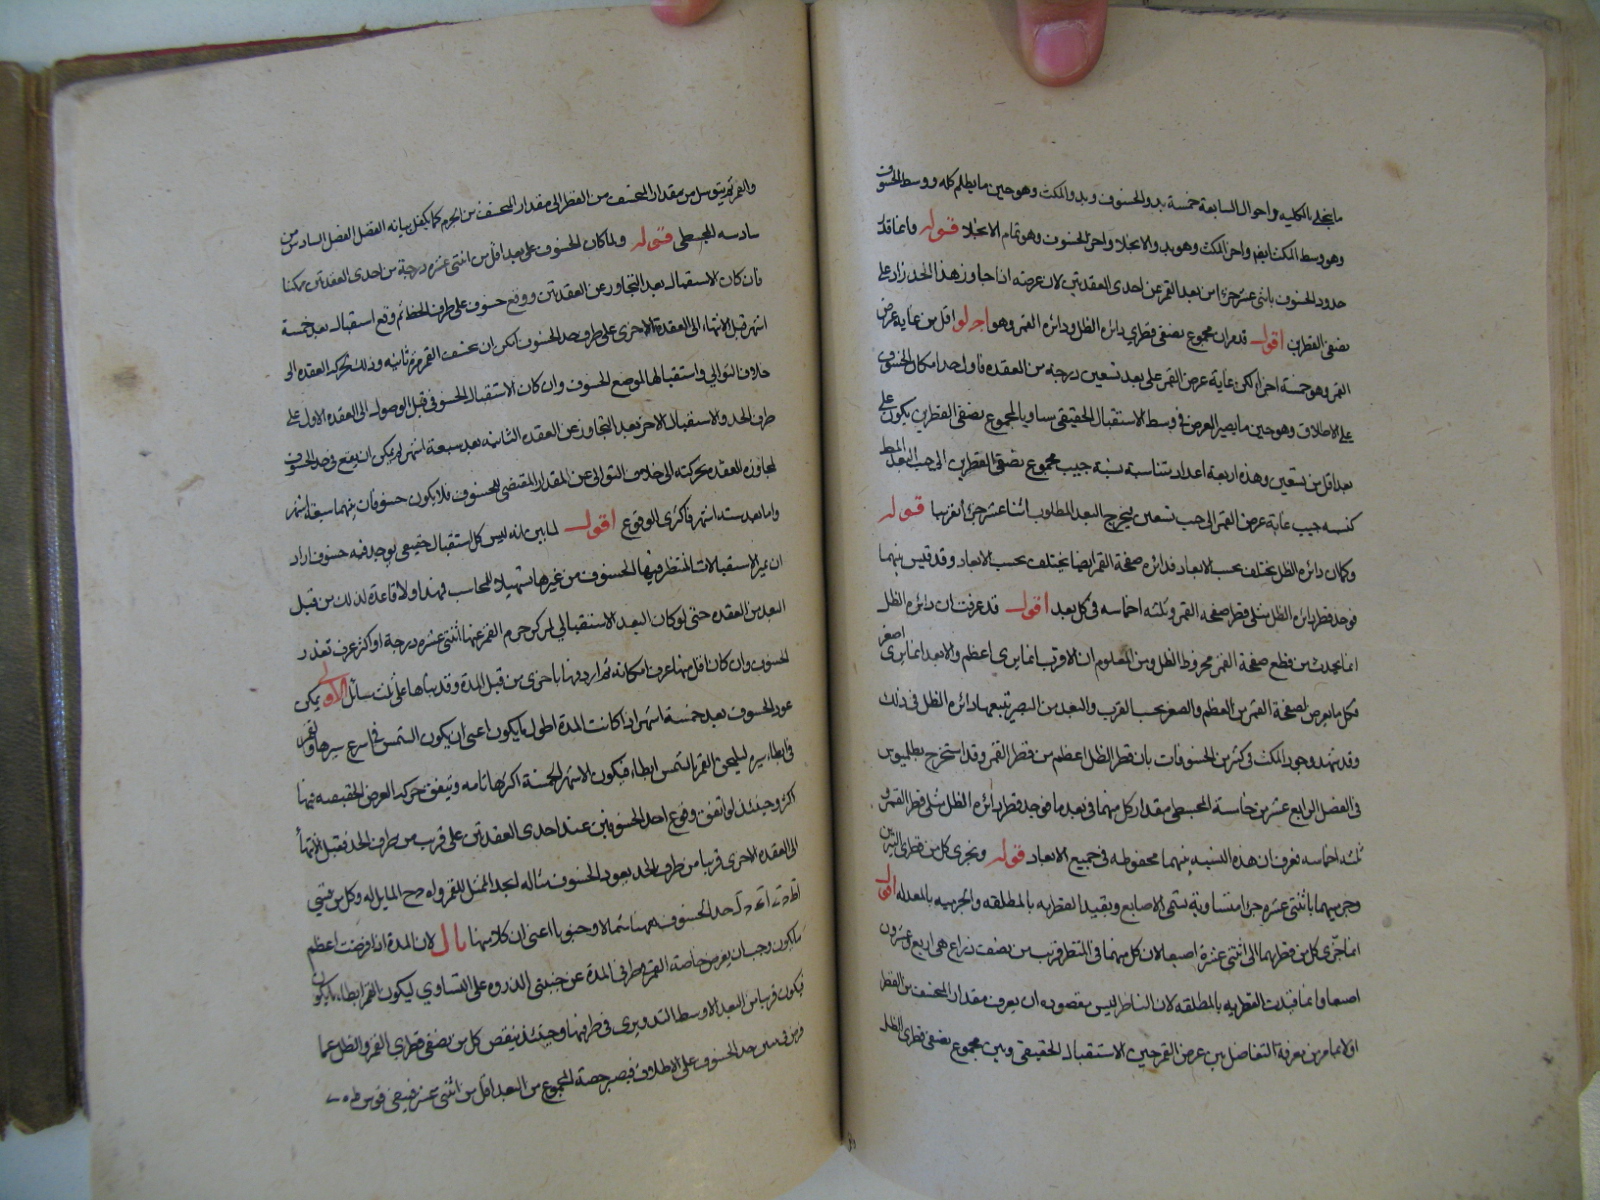 ما ينجلي بالكليه واحوال السابعة خمسة بدو الخسوف وبدو المكث وهو حين ما يظلم كله ووسط الخسوف
وهو وسط المكث ايضا واخر المكث وهو بدو الانجلا واخر الخسوف وهو تمام الانجلا قوله وانما قلنا
حدود الخسوف باثنى عشر جزءا من بعد القمر عن احدى العقدتين لان عرضه اذا جاوز هذا الحد زاد على
نصفى القطرين اقول قد مر ان مجموع نصفى قطري دائره الظل ودائره القمر وهو اقل من غاية عرض
القمر وهو خمسة اجزاء لكن غاية عرض القمر على بعد تسعين درجة من العقده فاول حد امكان الخسوف
على الاطلاق وهو حين ما يصير العرض في وسط الاستقبال الحقيقي مساويا لمجموع نصفى القطرين يكون على
بعد اقل من تسعين وهذه اربعة اعداد متناسبة نسبة جيب مجموع نصفى القطرين الى جيب البعد
كنسبه جيب غاية عرض القمر الى جيب تسعين فيخرج البعد المطلوب اثنا عشر جزءا تقريبا قوله
وكما ان دائره الظل تختلف بحسب الابعاد فدائره صفحة القمر ايضا تختلف بحسب الابعاد وقد قيس بينهما
فوجد قطر دائره الظل مثلي قطر صفحه القمر وثلثه اخماسه في كل بعد اقول قد عرفت ان دائره الظل
انما يحدث من قطع صفحة القمر مخروط الظل ومن المعلوم ان الاقرب انما يرى اعظم والابعد انما يرى اصغر
فكل ما يعرض لصفحة القمر من العظم والصغر بحسب القرب والبعد من البصر تتبعها دائره الظل في ذلك
وقد شهد وجود المكث في كثير من الخسوفات بان قطر الظل اعظم من قطر القمر وقد استخرج بطلميوس
في الفصل الرابع عشر من خامسة المجسطى مقدار كل منهما في بعد ما فوجد قطر دائره الظل مثلي قطر القمر و
ثلثه اخماسه نعرف ان هذه النسبه بينهما محفوظه في جميع الابعاد قوله ويجزى كل من قطري النيرين
وجرميهما باثنتى عشره جزءا متساوية تسمى الاصابع ويقيد القطريه بالمطلقه والجرميه بالمعدله اقول
انما جزى كل من قطريهما الى اثنتى عشرة اصبعا لان كل منهما في المنظر قريب من نصف ذراع هي اربع وعشرون
اصبعا وانما قيدت القطريه بالمطلقه لان الناظر ليس مقصوده ان يعرف مقدار المنخسف من القطر
اولا فيما مر من معرفة التفاضل بين عرض القمر حين الاستقبال الحقيقي وبين مجموع نصفى قطرى الظل
والقمر ثم يتوسل من مقدار المنخسف من القطر الى مقدار المنخسف من الجرم كما يكفل بيانه الفصل السادس من
سادسه المجسطى قوله ولما كان الخسوف على بعد اقل من اثنتى عشره درجة من احدى العقدتين ممكنا
فان كان الاستقبال بعد التجاوز عن العقدتين ووقع خسوف على طرف الحد ثم وقع استقبال بعد خمسة
اشهر قبل الانتهاء الى العقدة الاخرى على طرف حد الخسوف امكن ان ينخسف القمر مرة ثانيه وذلك لتحرك العقده الى
خلاف التوالي واستقبالها لموضع الخسوف وان كان الاستقبال الخسوفي قبل الوصول الى العقده الاولى على
طرف الحد والاستقبال الاخر بعد التجاوز عن العقده الثانيه بعد سبعة اشهر لم يمكن ان يقع في حد الخسوف
لمجاوزه العقده بحركته الى خلاف التوالي عن المقدار المقتضى للخسوف فلا يكون خسوفان بينهما سبعة اشهر
واما بعد سته اشهر فاكثرى الوقوع اقول لما بين انه ليس كل استقبال حقيقي يوجد فيه خسوف اراد
ان يميز الاستقبالات المنتظر فيها الخسوف من غيرها تسهيلا للمحاسب فمهد اولا قاعدة لذلك من قبل
البعد من العقده حتى لو كان البعد الاستقبالي لمركز جرم القمر عنها اثنتى عشره درجة او اكثر عرف تعذر
الخسوف وان كان اقل منها عرف امكانه ثم اردفها باخرى من قبل المدة وقد بناها على ثلث مسائل الاولى يمكن
عود الخسوف بعد خمسة اشهر اذا كانت المدة اطول ما يكون اعنى ان يكون الشمس في اسرع سيرها والقمر
في ابطاء سيره ليلحق القمر الشمس ابطاء فيكون الاشهر الخمسة اكثرها تامه ويتفق حركه العرض الحقيقيه فيها
اكثر وحينئذ لو اتفق وقوع احد الخسوفين عند احدى العقدتين على قرب من طرف الحد فقبل الانتهاء
الى العقده الاخرى قريبا من طرف الحد يعود الخسوف مثاله ا ب ج د الممثل للقمر و ا ه ح المايل له وكل من قسي
حد الخسوف ههنا شمالا وجنوبا اعنى ان كلا منها لان المدة اذا فرضت اعظم
ما يكون وجب ان يعرض خاصة القمر في طرفي المدة عن جنبتي الذروه على التساوي ليكون القمر ابطاء ما يكون
فيكون قريبا من البعد الاوسط التدويري في طرفيها وحينئذ ينقص كل من نصفى قطري القمر والظل عما
فرض في حد الخسوف على الاطلاق فيصير حصة المجموع من البعد اقل من اثنتى عشر فينبغى قوس